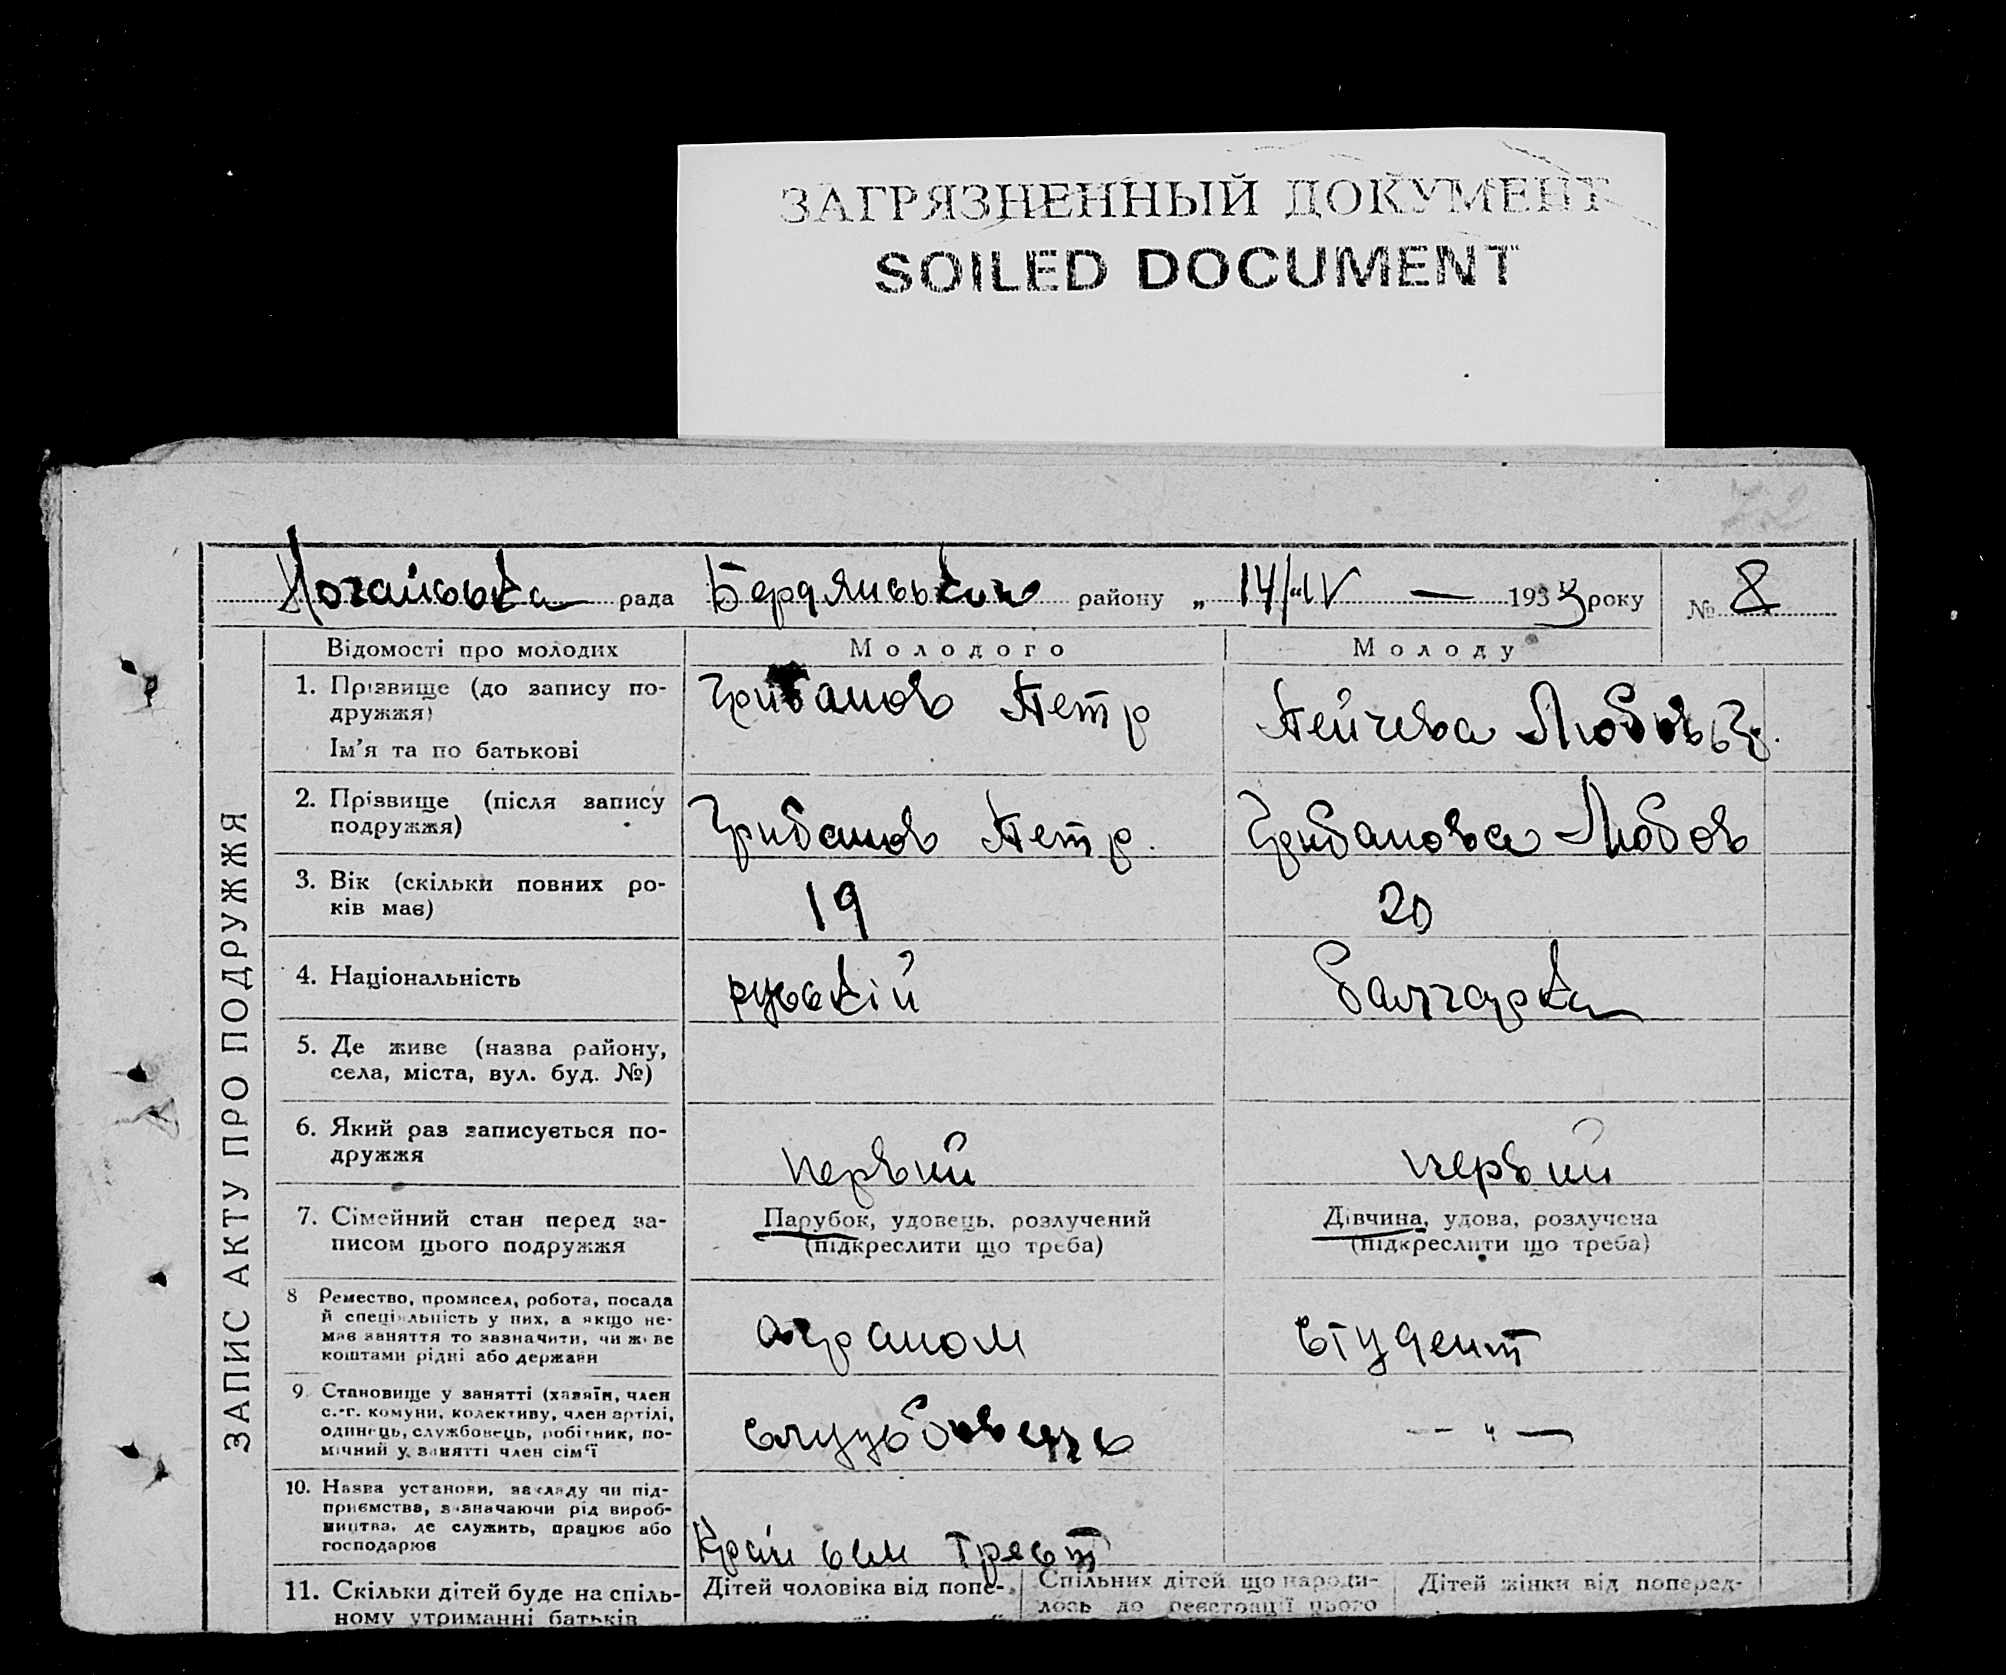 ЗАГРЯЗНЕННЫЙ ДОКУМЕНТ
SOILED DOCUMENT
Ногайська рада Бердянським району „ 14/IV — 1933 року № 8
ЗАПИС АКТУ ПРО ПОДРУЖЖЯ
Відомості про молодих Молодого Молоду
1. Прізвище (до запису по-
дружжя)
Ім'я та по батькові
Грибанов Петр
Пейчева Любовь Г.
2. Прізвище (після запису
подружжя)
Грибанов Петр.
Грибанова Любов
3. Вік (скільки повних ро-
ків має)
19
20
4. Національність
руський
балгарка
5. Де живе (назва району,
села, міста, вул. буд. №)
6. Який раз записується по-
дружжя
первий
первий
7. Сімейний стан перед за-
писом цього подружжя
Парубок, удовець, розлучений
(підкреслити що треба)
Дівчина, удова, розлучена
(підкреслити що треба)
8 Ремество, промисел, робота, посада
й спеціяльність у них, а якщо не-
має заняття то зазначити, чи живе
коштами рідні або держави
аграном
студент
9. Становище у занятті (хазяїн, член
с.-г. комуни, колективу, член артілі,
одинець, службовець, робітник, по-
мічний у занятті член сім'ї
— „ —
10. Назва установи, закладу чи під-
приємства, зазначаючи рід вироб-
ництва, де служить, працює або
господарює
Край сем трест
11. Скільки дітей буде на спіль-
ному утриманні батьків
Дітей чоловіка від попе-
Спільних дітей що народи-
лось до реєстрації цього
Дітей жінки від поперед-